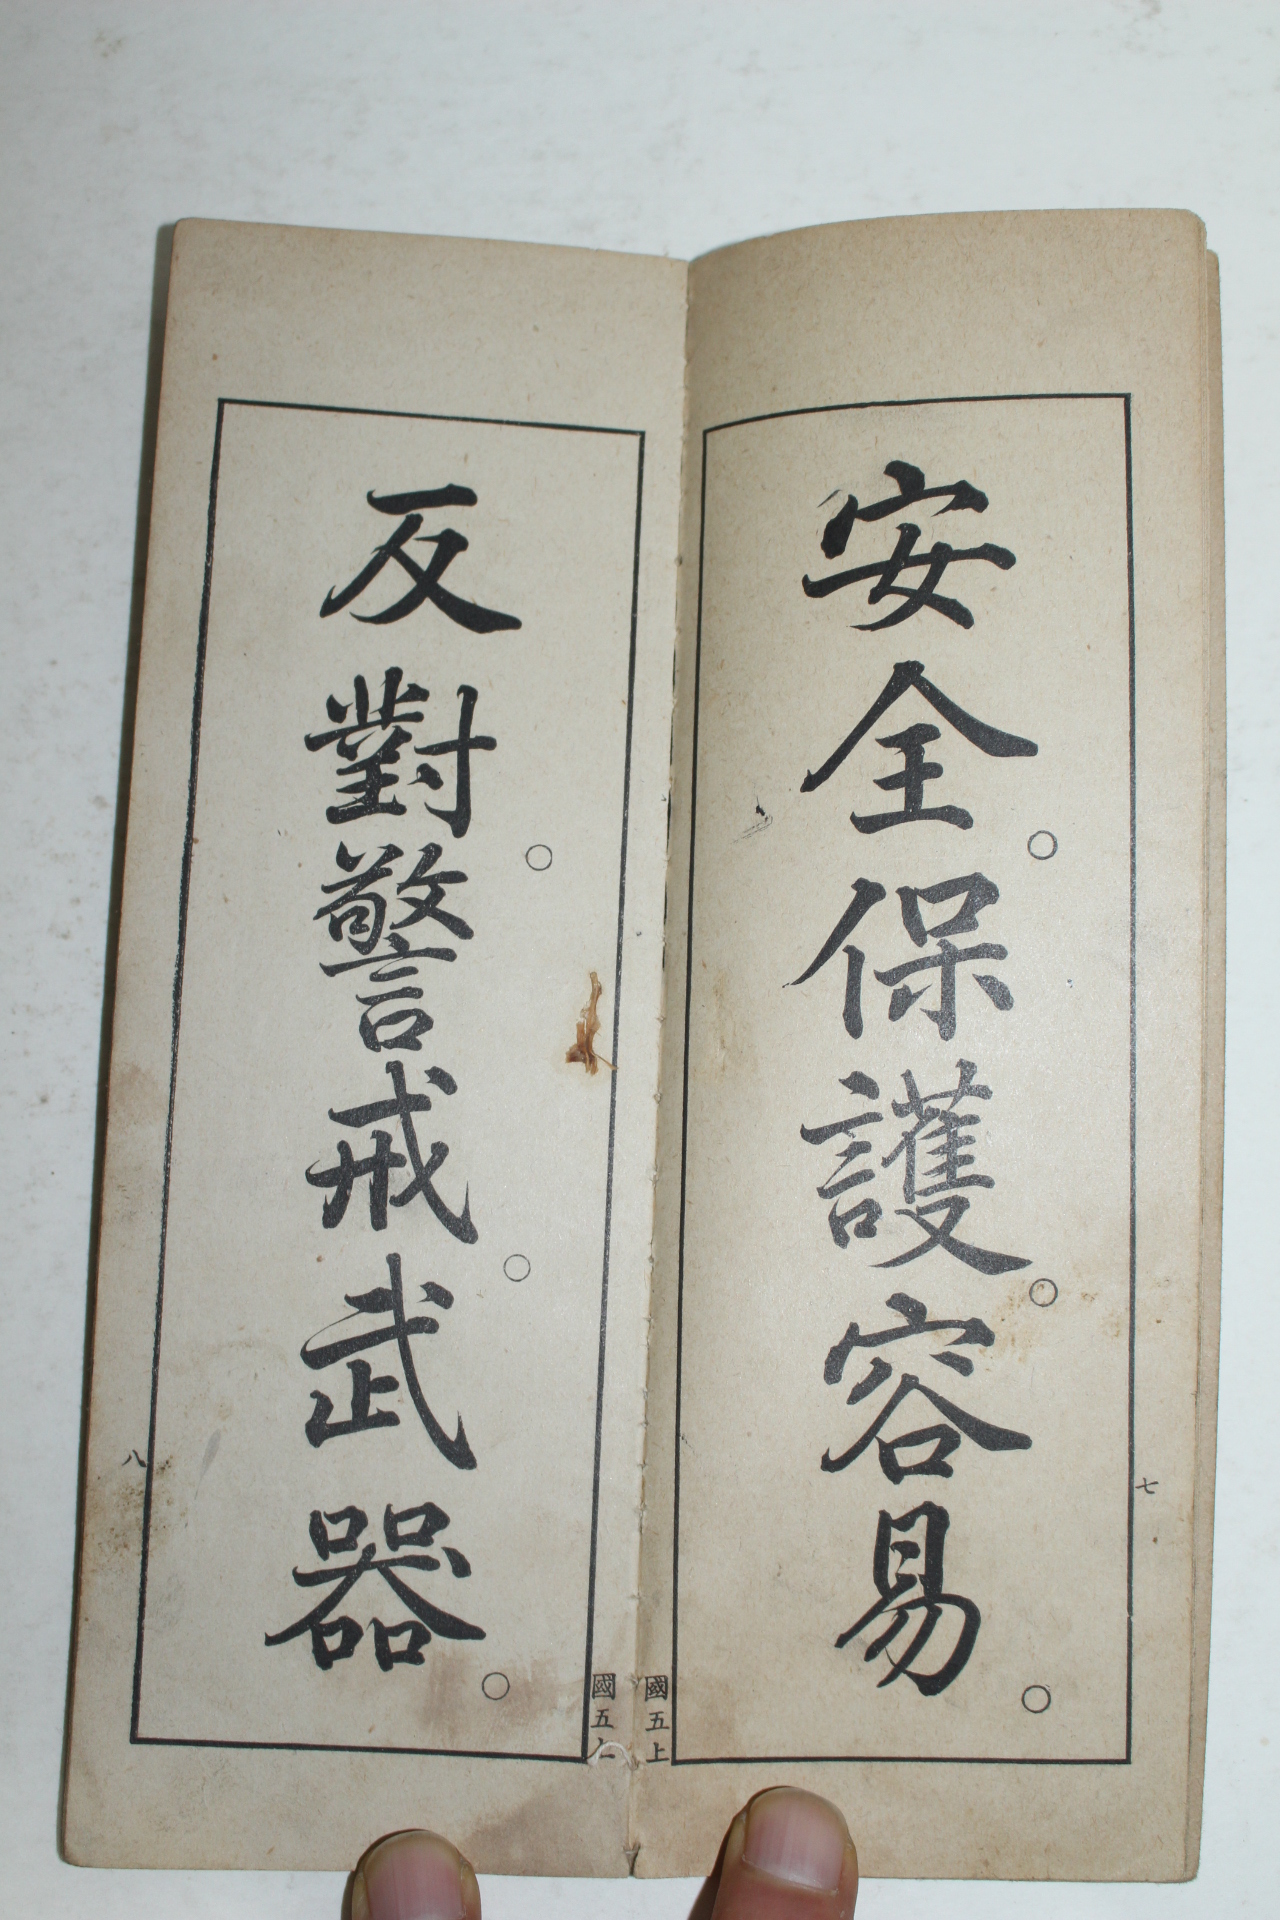 安全○保護○容易○
七
國五上
反對○警戒○武器○
八
國五上